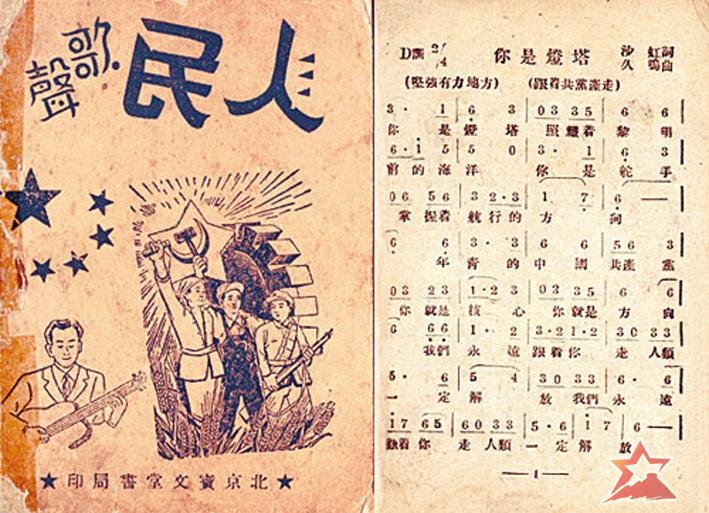 人民
歌聲
北京寶文堂書局印
D調 2/4 你是燈塔 沙虹詞
久鳴曲
(堅強有力地方) (跟着共黨產走)
3· 1 | 6 3 | 03 35 | 6 6 |
你 是 燈 塔 照耀着 黎 明
6·1 5 | 5 0 | 3· 1 | 6 3 |
前的海 洋 你 是 舵 手
06 56 | 32·3 | 1 7 | 6 — |
掌握着 航行的 方 向
6 6 | 3· 3 | 6 6 | 56 3 |
年青的中國共產黨
03 23 | 1·23 | 03 35 | 6 6 |
你就是 核 心 你就是 方 向
6 66 | 1· 2 | 3·21·2 | 30 33 |
我們 永 遠 跟着你 走 人類
5· 6 | 5 4 | 30 33 | 6· 6 |
一 定 解 放 我們永 遠
1765 | 6033 | 5·617 | 6 — |
跟着你 走 人類 一定解 放
— 1 —